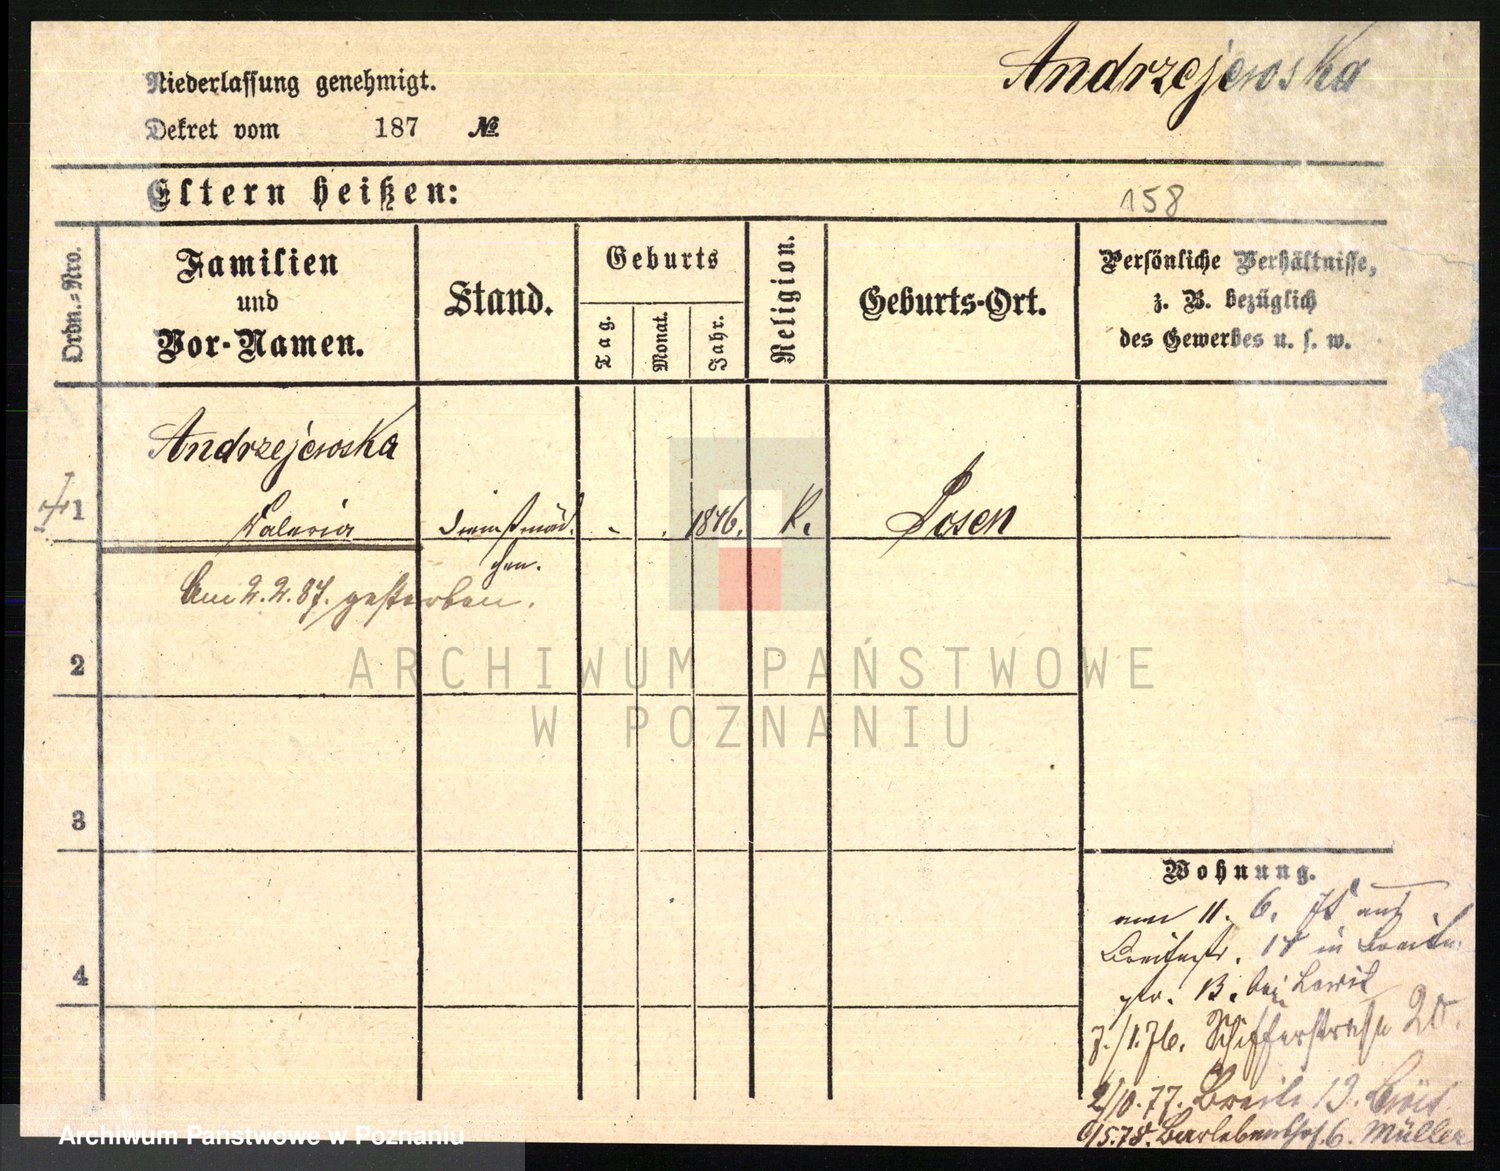 Andrzejewska
Niederlassung genehmigt.
Dekret vom 187 №
Eltern heißen:
158
Ordn.=Nro.
Familien
und
Vor-Namen.
Stand.
Geburts
Tag.
Monat.
Jahr.
Religion.
Geburts-Ort.
Persönliche Verhältnisse,
z. B. bezüglich
des Gewerbes u. s. w.
Andrzejewska
1 Valeria Dienstmäd- - . 1846. K. Posen
chen.
Am 2.2.87. gestorben.
2
3
4
Wohnung.
11. 6. aus
Breitestr. in
13. bei Lewit
7./1.76. Schifferstraße 20.
2/10.77. Breite 13.
6/5.78. 6. Müller
ARCHIWUM PAŃSTWOWE
W POZNANIU
Archiwum Państwowe w Poznaniu